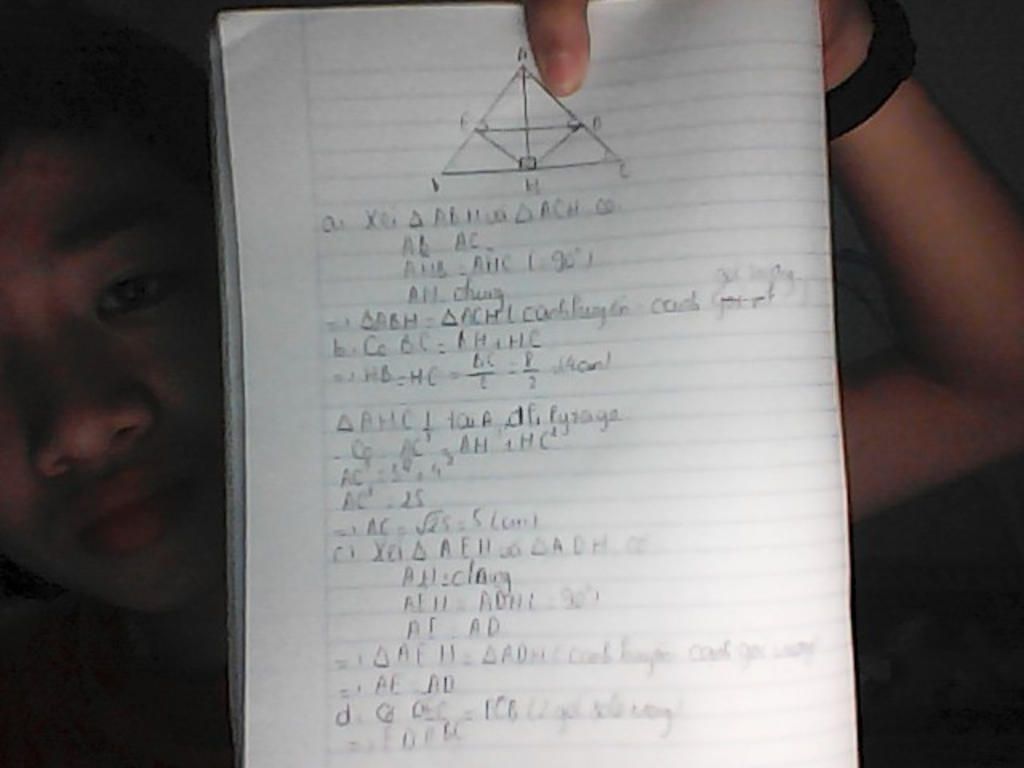 A
E D
B H C
a. Xét △ ABH và △ ACH có
AB AC
AHB = AHC ( = 90°)
AH chung
=> △ABH = △ACH ( cạnh huyền - cạnh góc vuông
b. Có BC = BH + HC
=> HB = HC = BC/2 = 8/2 = 4(cm)
△ AHC ⊥ tại A, Py
Có AC² = AH² + HC²
AC² = 3² + 4²
AC² = 25
=> AC = √25 = 5 (cm)
c) Xét △ AEH và △ ADH có
AH = chung
AEH = ADH ( = 90°)
AE = AD
=> △ AEH = △ADH ( cạnh huyền cạnh góc vuông
=> AE = AD
d. Có
=> ED // BC